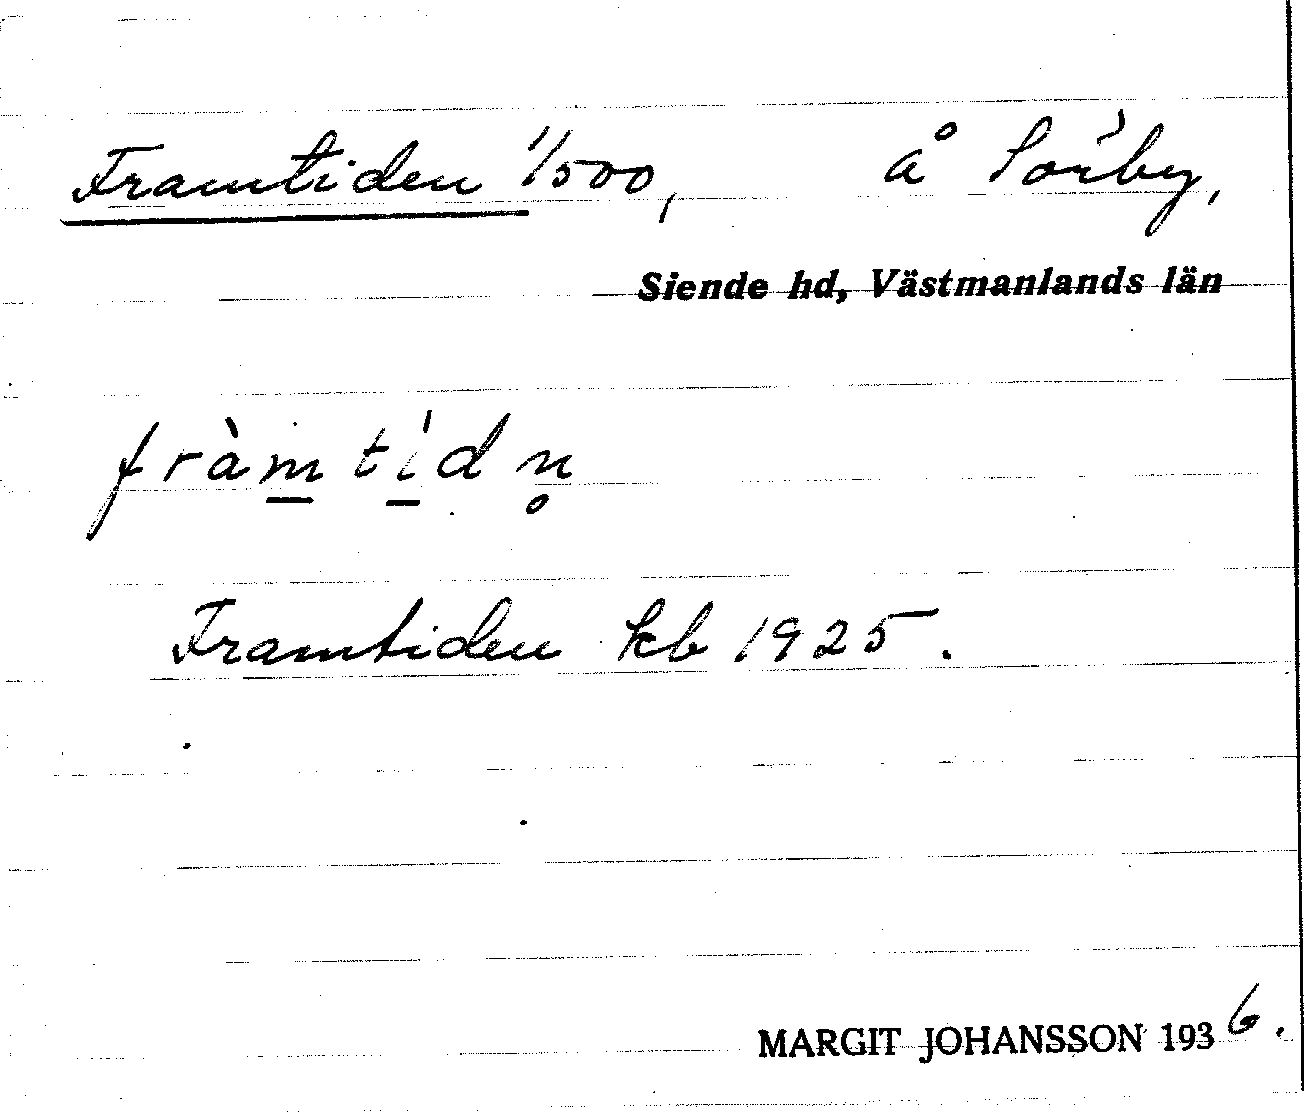 Framtiden 1/500, å Sörby,
Siende hd, Västmanlands län
fràm̲ tí̲dn̥
Framtiden kb 1925.
MARGIT JOHANSSON 1936.